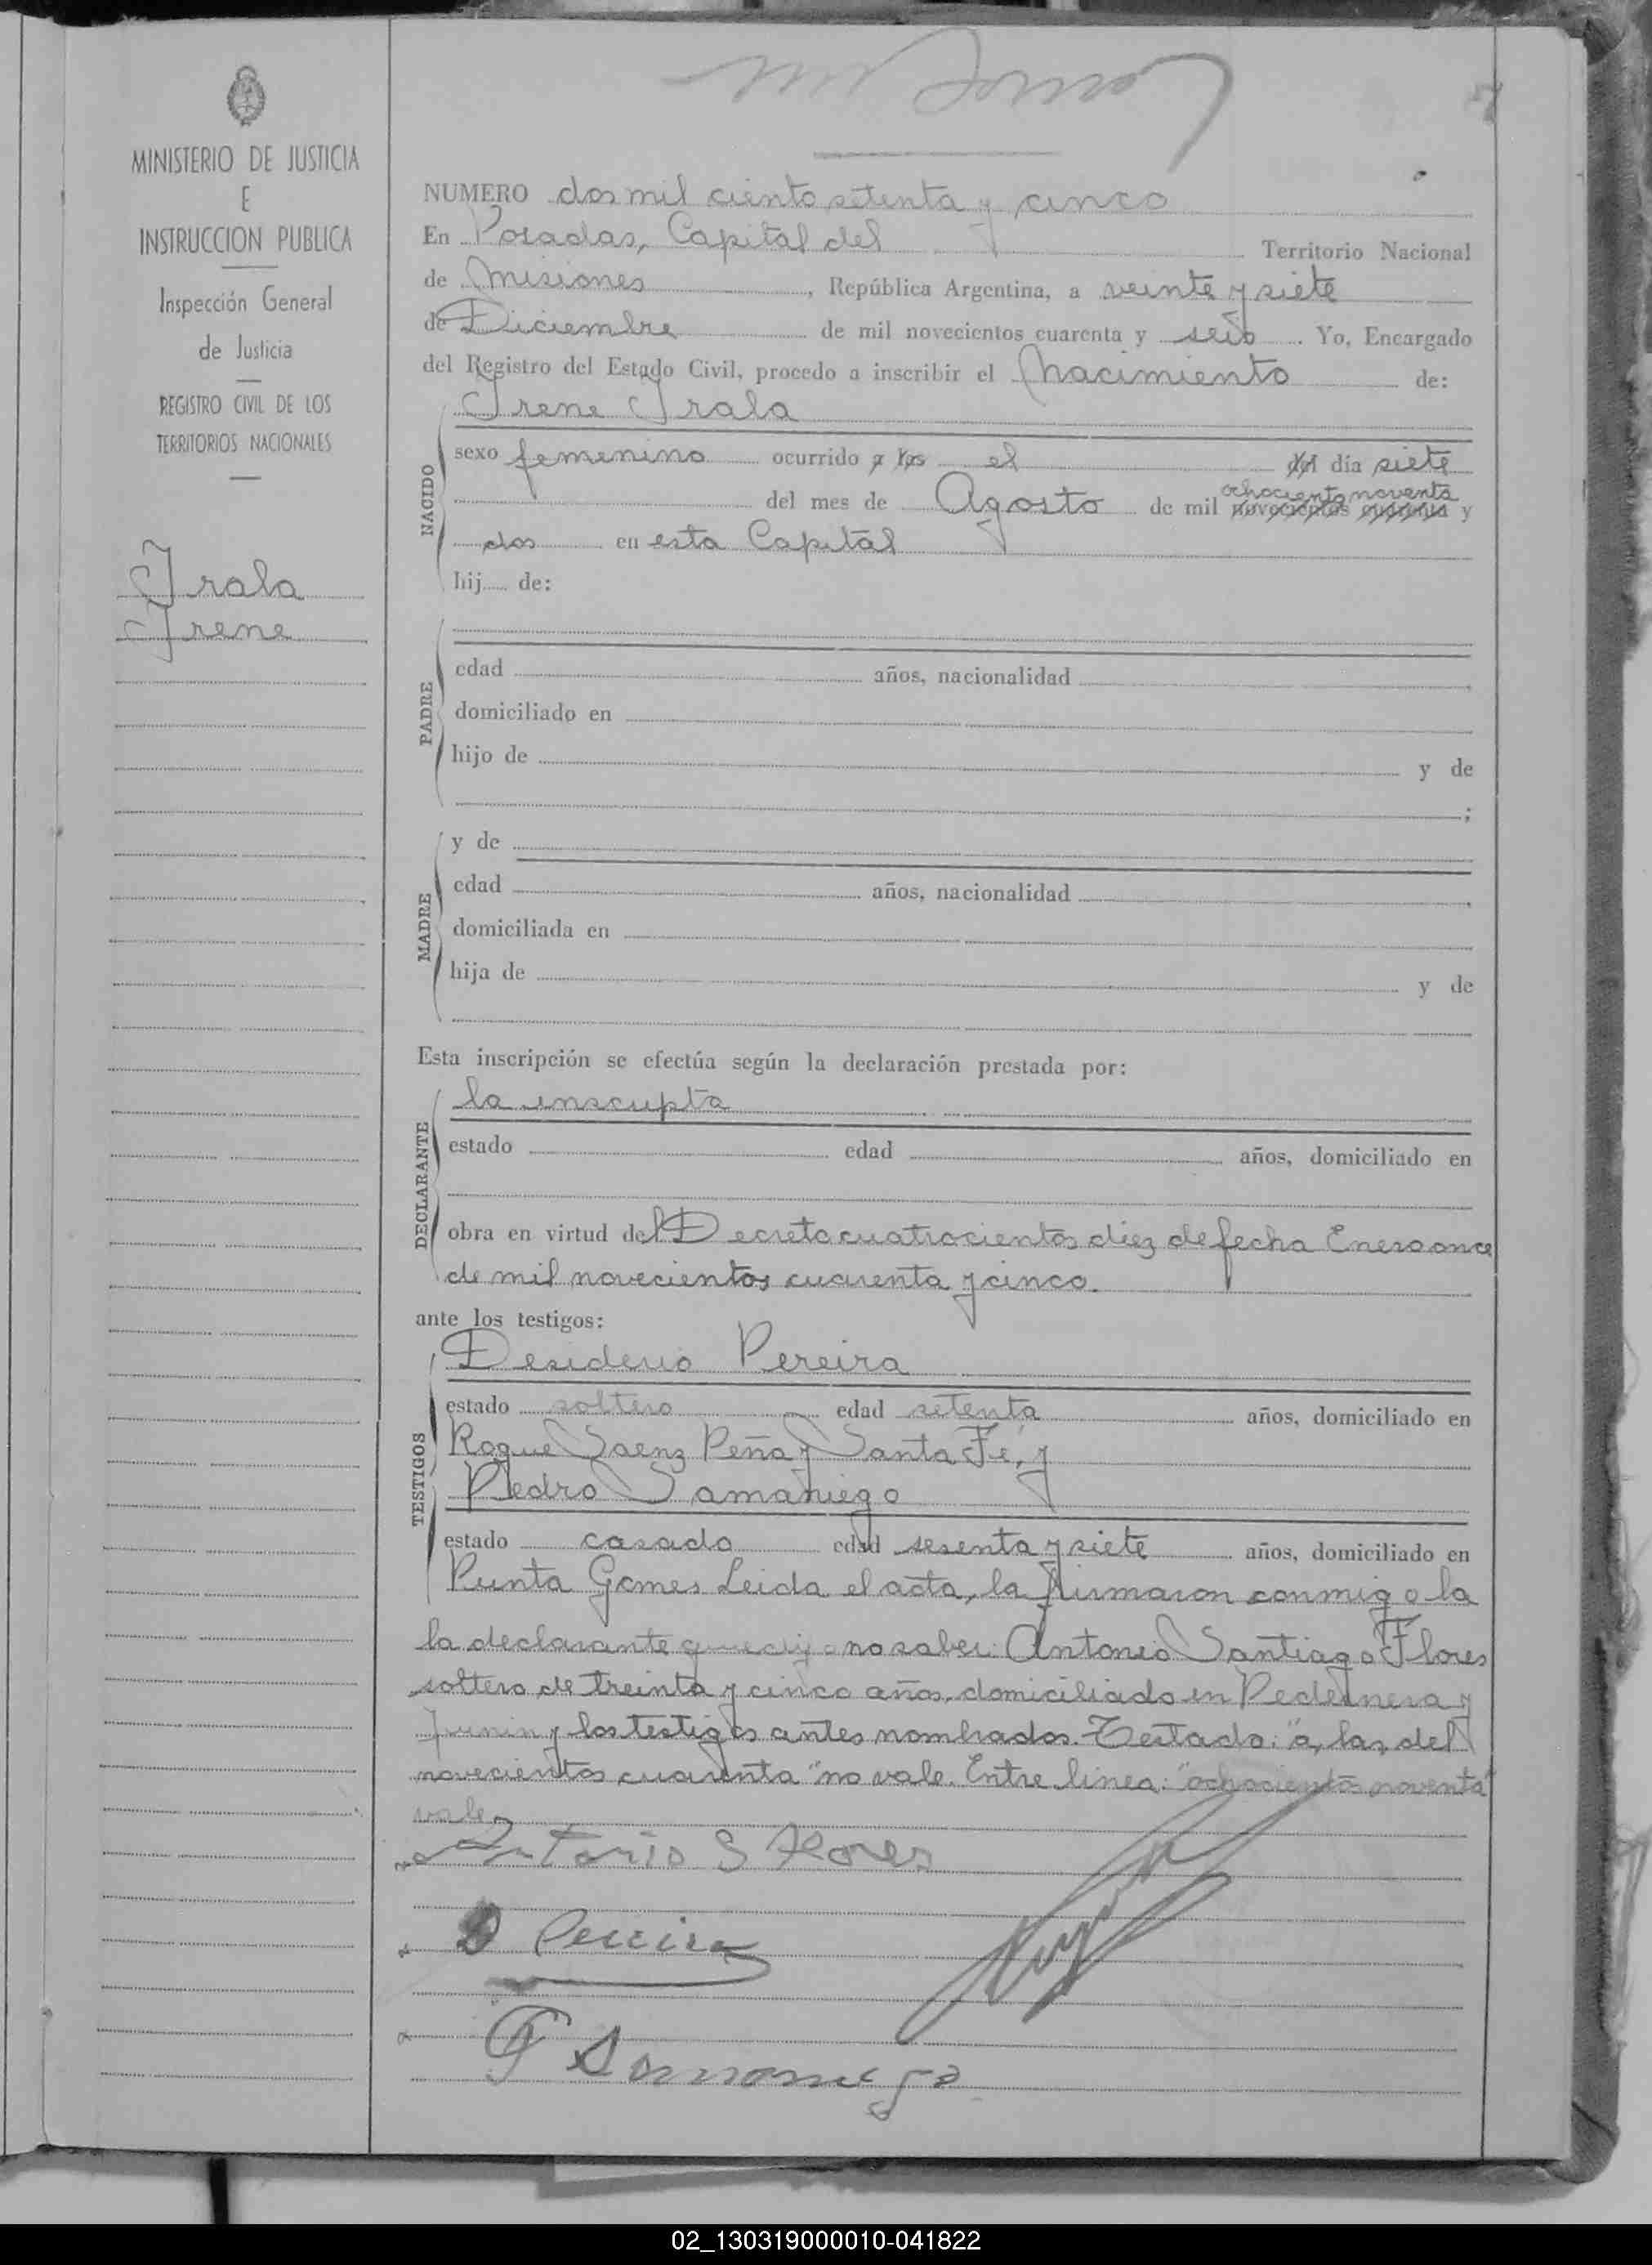 MINISTERIO DE JUSTICIA
E
INSTRUCCION PUBLICA
Inspección General
de Justicia
REGISTRO CIVIL DE LOS
TERRITORIOS NACIONALES
Irala
Irene
NUMERO dos mil ciento setenta y cinco
En Posadas, Capital del Territorio Nacional
de Misiones, República Argentina, a veinte y siete
de Diciembre de mil novecientos cuarenta y seis. Yo, Encargado
del Registro del Estado Civil, procedo a inscribir el Nacimiento de:
Irene Irala
NACIDO
sexo femenino ocurrido a las el del día siete
ochociento noventa
del mes de Agosto de mil novecientos cuarenta y
dos en esta Capital
hij de:
PADRE
edad años, nacionalidad
domiciliado en
hijo de y de
;
MADRE
y de
edad años, nacionalidad
domiciliada en
hija de y de
Esta inscripción se efectúa según la declaración prestada por:
DECLARANTE
la inscripta
estado edad años, domiciliado en
obra en virtud del Decreto cuatrocientos diez de fecha Enero once
de mil novecientos cuarenta y cinco.
ante los testigos:
TESTIGOS
Desiderio Pereira
estado soltero edad setenta años, domiciliado en
Roque Saenz Peña y Santa Fé, y
Pedro Samaniego
estado casado edad sesenta y siete años, domiciliado en
Punta Gomes Leida el acta, la firmaron conmigo la
la declarante no saber: Antonio Santiago Flores
soltero de treinta y cinco años, domiciliado en Pedernera y
Junin y los testigos antes nombrados. Testado: "a, las, del
novecientos cuarenta" no vale. Entre linea: "ochociento noventa"
vale.
Antonio S Flores
D Pereira
P Samaniego
02_130319000010-041822